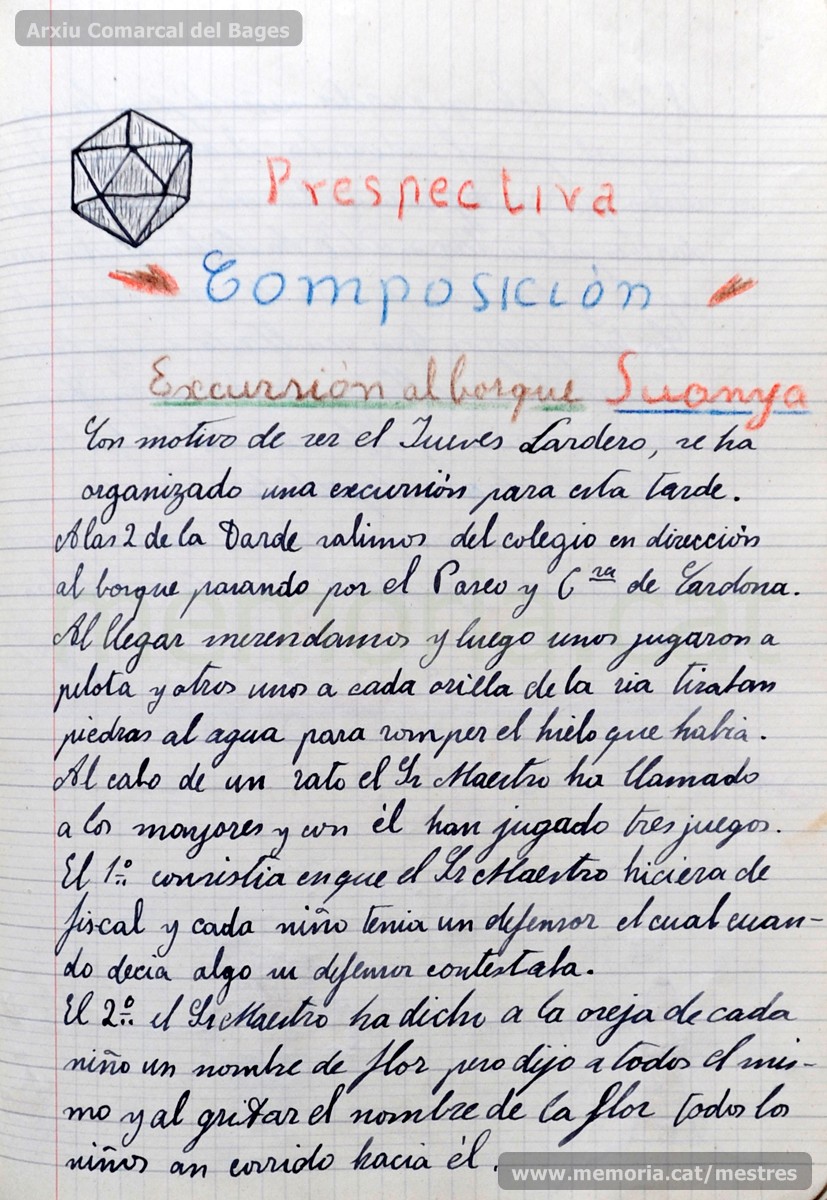 Arxiu Comarcal del Bages
Prespectiva
Composición
Excursión al bosque Suanya
Con motivo de ser el Jueves Lardero, se ha
organizado una excursión para esta tarde.
A las 2 de la Tarde salimos del colegio en dirección
al bosque pasando por el Paseo y Cra de Cardona.
Al llegar merendamos y luego unos jugaron a
pelota y otros unos a cada orilla de la ria tiraban
piedras al agua para romper el hielo que habia.
Al cabo de un rato el Sr Maestro ha llamado
a los mayores y con él han jugado tres juegos.
El 1º consistia en que el Sr Maestro hiciera de
fiscal y cada niño tenia un defensor el cual cuan-
do decia algo su defensor contestaba.
El 2º el Sr Maestro ha dicho a la oreja de cada
niño un nombre de flor pero dijo a todos el mis-
mo y al gritar el nombre de la flor todos los
niños an corrido hacia él.
www.memoria.cat/mestres